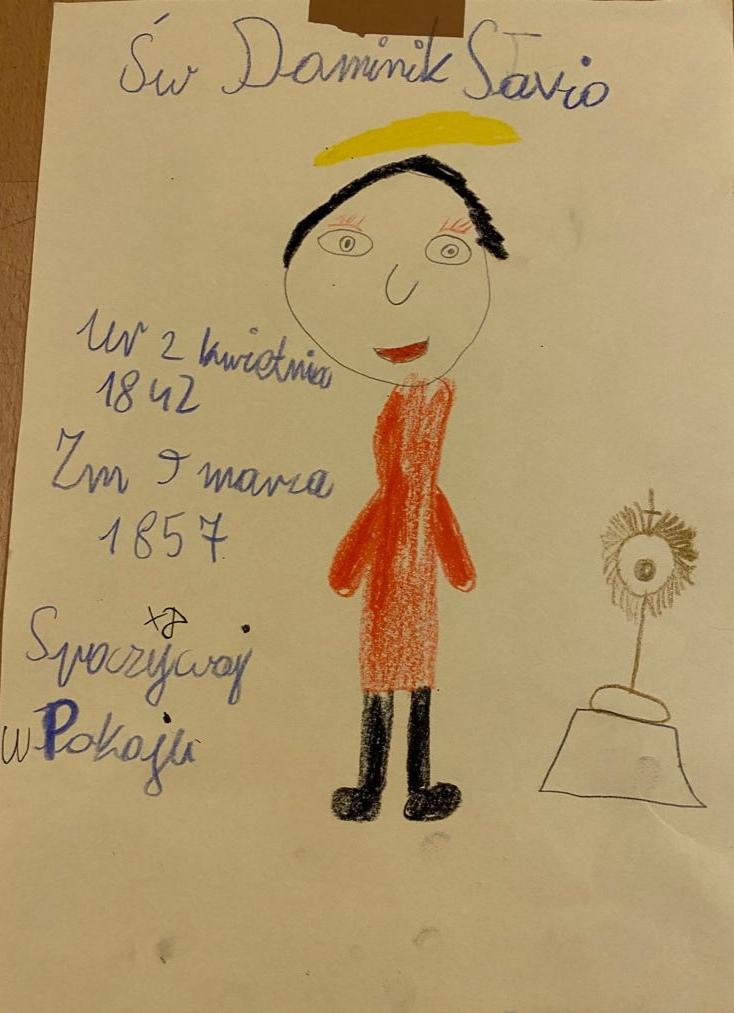 Św Dominik Savio
Ur 2 kwietnia
1842
Zm 9 marca
1857
XD
Spoczywaj
w Pokoju